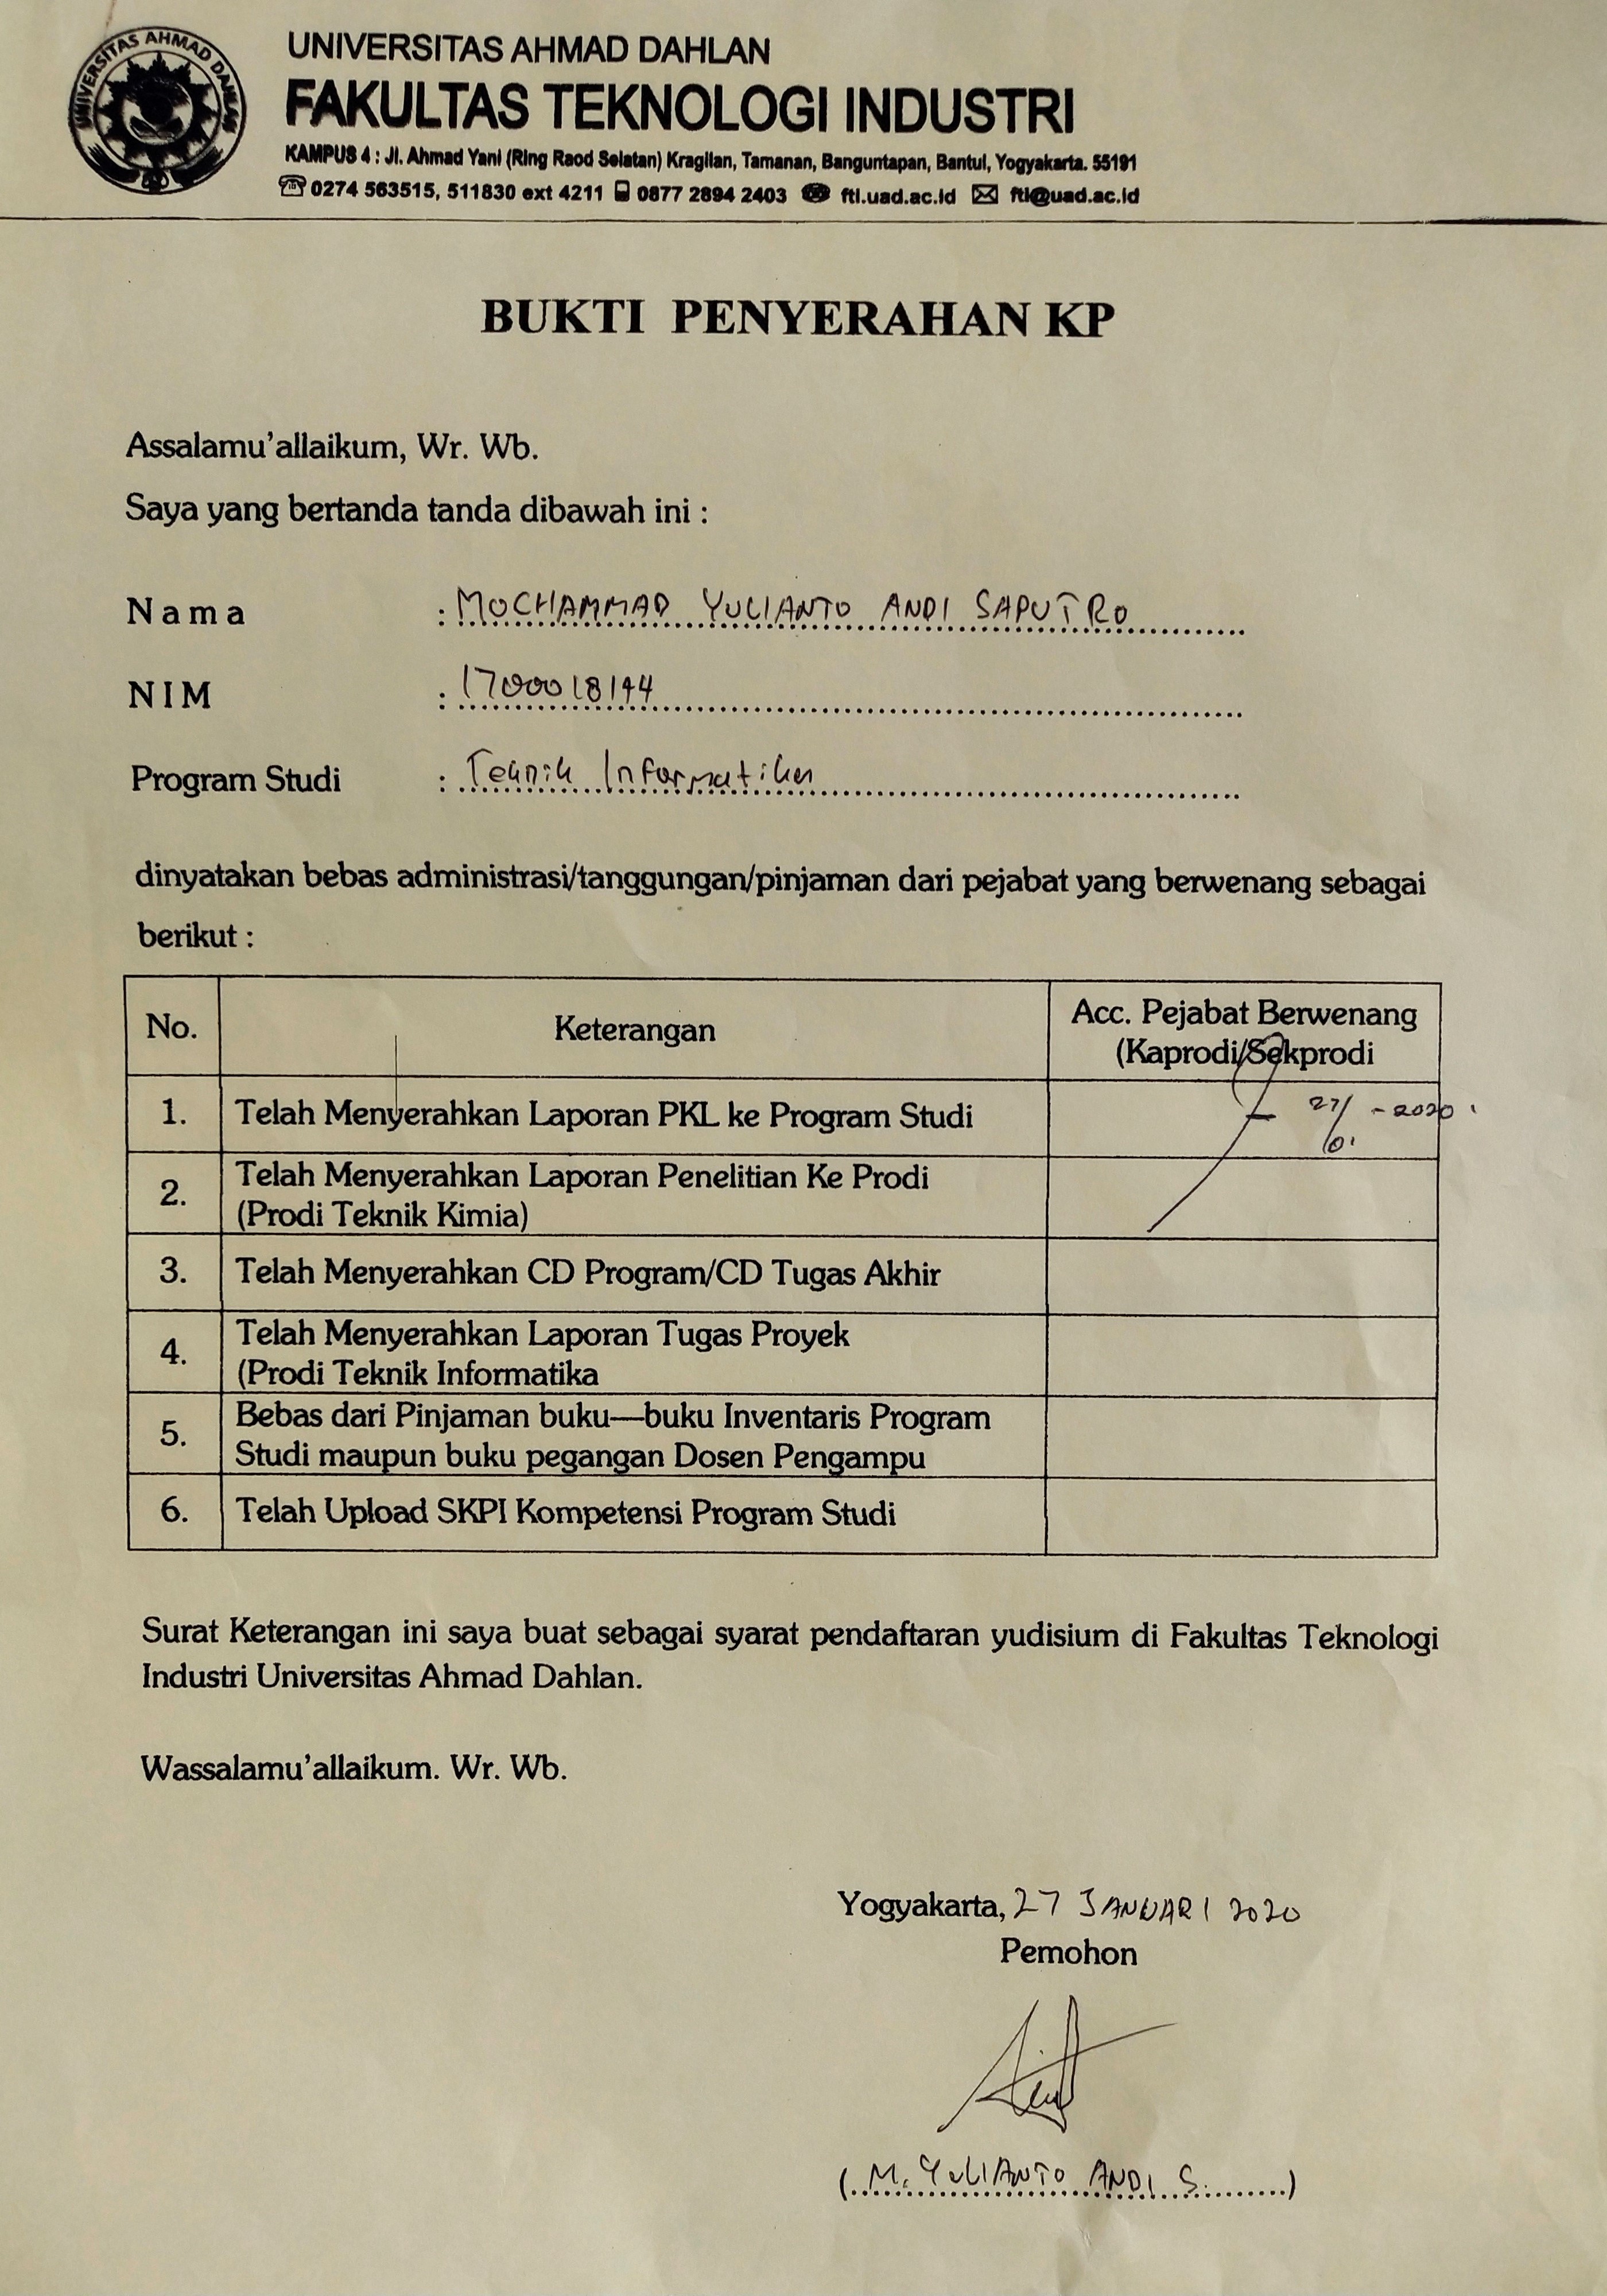 UNIVERSITAS AHMAD DAHLAN
UNIVERSITAS AHMAD DAHLAN
FAKULTAS TEKNOLOGI INDUSTRI
KAMPUS 4 : Jl. Ahmad Yani (Ring Raod Selatan) Kragilan, Tamanan, Banguntapan, Bantul, Yogyakarta. 55191
0274 563515, 511830 ext 4211 0877 2894 2403 fti.uad.ac.id fti@uad.ac.id
BUKTI PENYERAHAN KP
Assalamu'allaikum, Wr. Wb.
Saya yang bertanda tanda dibawah ini :
Nama : MOCHAMMAD YULIANTO ANDI SAPUTRO
NIM : 1700018144
Program Studi : Teknik Informatika
dinyatakan bebas administrasi/tanggungan/pinjaman dari pejabat yang berwenang sebagai
berikut :
No. Keterangan Acc. Pejabat Berwenang
(Kaprodi/Sekprodi
1. Telah Menyerahkan Laporan PKL ke Program Studi 27/01-2020
2. Telah Menyerahkan Laporan Penelitian Ke Prodi
(Prodi Teknik Kimia)
3. Telah Menyerahkan CD Program/CD Tugas Akhir
4. Telah Menyerahkan Laporan Tugas Proyek
(Prodi Teknik Informatika
5. Bebas dari Pinjaman buku—buku Inventaris Program
Studi maupun buku pegangan Dosen Pengampu
6. Telah Upload SKPI Kompetensi Program Studi
Surat Keterangan ini saya buat sebagai syarat pendaftaran yudisium di Fakultas Teknologi
Industri Universitas Ahmad Dahlan.
Wassalamu'allaikum. Wr. Wb.
Yogyakarta, 27 JANUARI 2020
Pemohon
(M. YULIANTO ANDI S.)